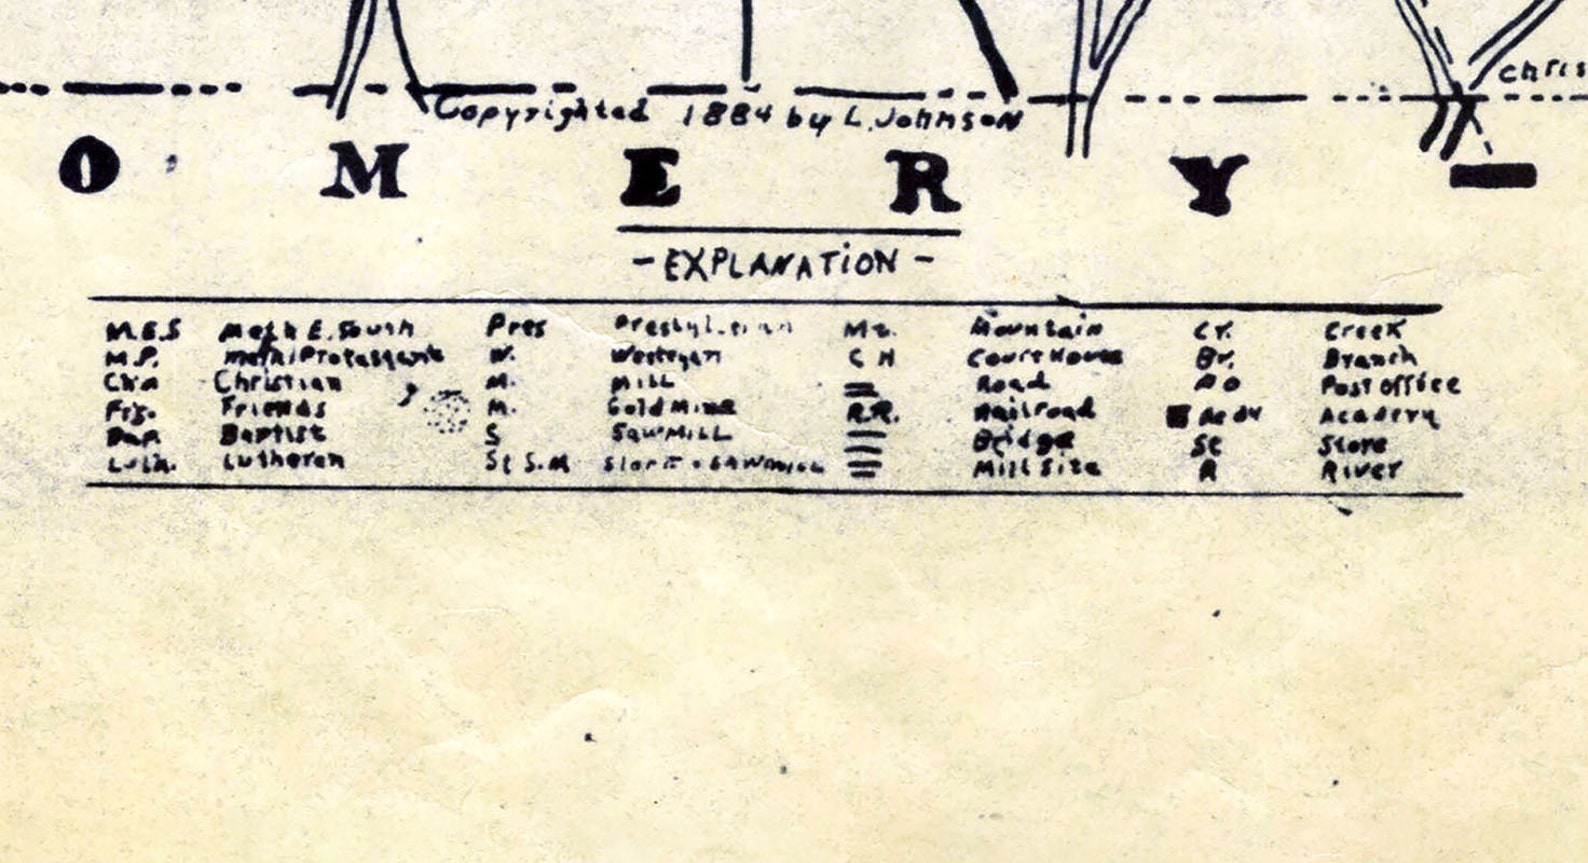 Chris
Copyrighted 1884 by L. Johnson
O M E R Y -
- EXPLANATION -
M.E.S Meth E. South Pres Presbyterian Mt. Mountain Cr. Creek
M.P. Meth Protestant W. Westeyan C H Court House Br. Branch
Chn Christian M. Mill Road P O Post office
Frs. Friends M. Gold Mine R.R. Railroad Acdy Academy
Bap. Baptist S Saw Mill Bridge St Store
Luth. Lutheran St S.M Store & Sawmill Mill Site R River